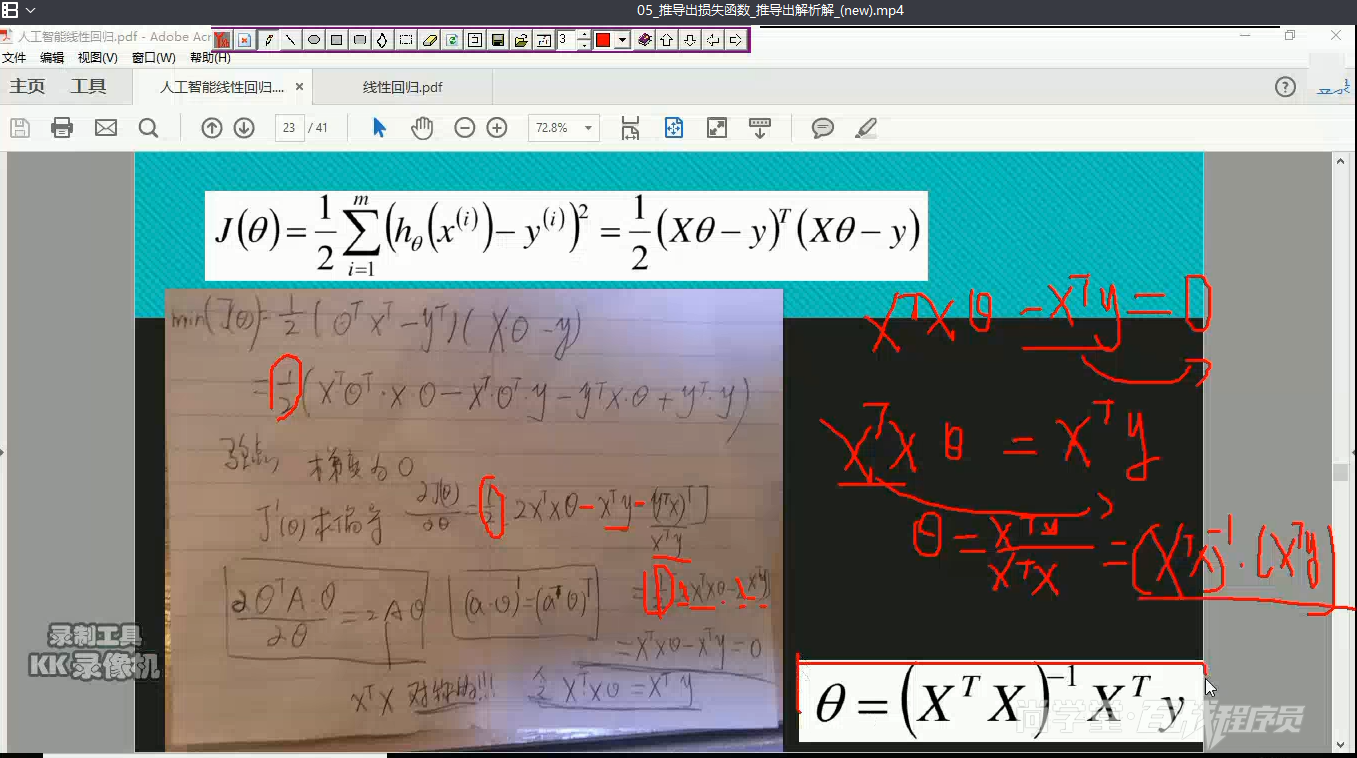 05_推导出损失函数_推导出解析解_(new).mp4
人工智能线性回归.pdf - Adobe Acr
3
文件 编辑 视图(V) 窗口(W) 帮助(H)
主页 工具 人工智能线性回归.... × 线性回归.pdf
登录
23 / 41 72.8%
J(θ) = 1/2 ∑_{i=1}^{m} (h_θ(x^{(i)}) − y^{(i)})² = 1/2 (Xθ − y)^T (Xθ − y)
min(J(θ)) = 1/2 (θ^T X^T − y^T)(X·θ − y)
= 1/2 (X^T θ^T · X · θ − X^T · θ^T · y − y^T X · θ + y^T · y)
梯度为 0
J'(θ) 求偏导 ∂J(θ)/∂θ = 1/2 2X^T Xθ − X^T y − (y^T X)^T ]
X^T y
∂θ^T A·θ/∂θ = 2Aθ
= X^T Xθ − X^T y = 0
X^T X 对称的!!!
X^T Xθ = X^T y
X^T X θ − X^T y = 0
X^T X θ = X^T y
θ = X^T y / X^T X = (X^T X)^{-1} · (X^T y)
θ = (X^T X)^{−1} X^T y
录制工具
KK 录像机
尚学堂·百战程序员